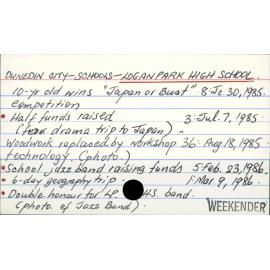 DUNEDIN CITY-SCHOOLS-LOGAN PARK HIGH SCHOOL.
10-yr old wins "Japan or Bust" 8:Je 30, 1985.
competition
• Half funds raised 3:Jul.7, 1985.
(for drama trip to Japan)
Woodwork replaced by workshop 36: Aug 18, 1985.
technology. (photo.)
• School jazz band raising funds 5:Feb.23, 1986.
• 6-day geography trip. 1:Mar 9, 1986.
• Double honour for L.P. H.S. band.
(photo. of Jazz Band).
WEEKENDER